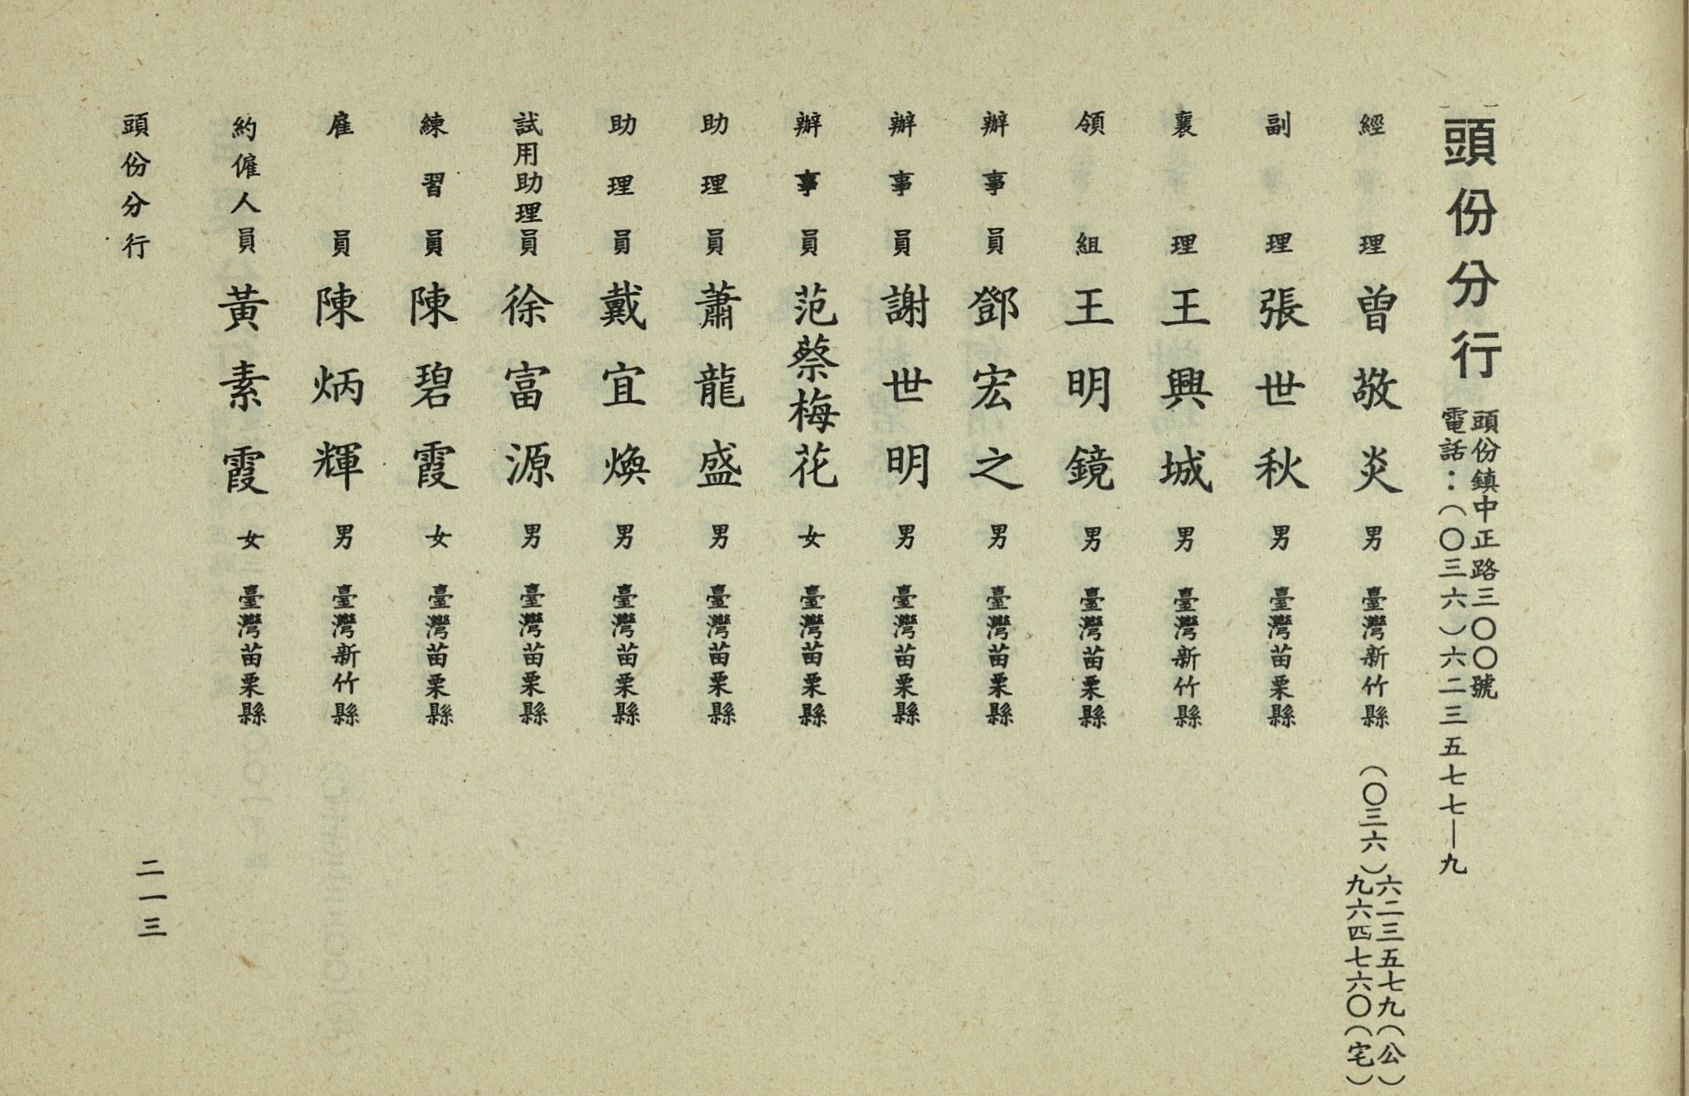 頭份分行
頭份鎮中正路三〇〇號
電話：（〇三六）六二三五七七—九
經理 曾敬炎 男 臺灣新竹縣 （〇三六）六二三五七九（公）
九六四七六〇（宅）
副理 張世秋 男 臺灣苗栗縣
襄理 王興城 男 臺灣新竹縣
領組 王明鏡 男 臺灣苗栗縣
辦事員 鄧宏之 男 臺灣苗栗縣
辦事員 謝世明 男 臺灣苗栗縣
辦事員 范蔡梅花 女 臺灣苗栗縣
助理員 蕭龍盛 男 臺灣苗栗縣
助理員 戴宜煥 男 臺灣苗栗縣
試用助理員 徐富源 男 臺灣苗栗縣
練習員 陳碧霞 女 臺灣苗栗縣
雇員 陳炳輝 男 臺灣新竹縣
約僱人員 黃素霞 女 臺灣苗栗縣
頭份分行
二一三